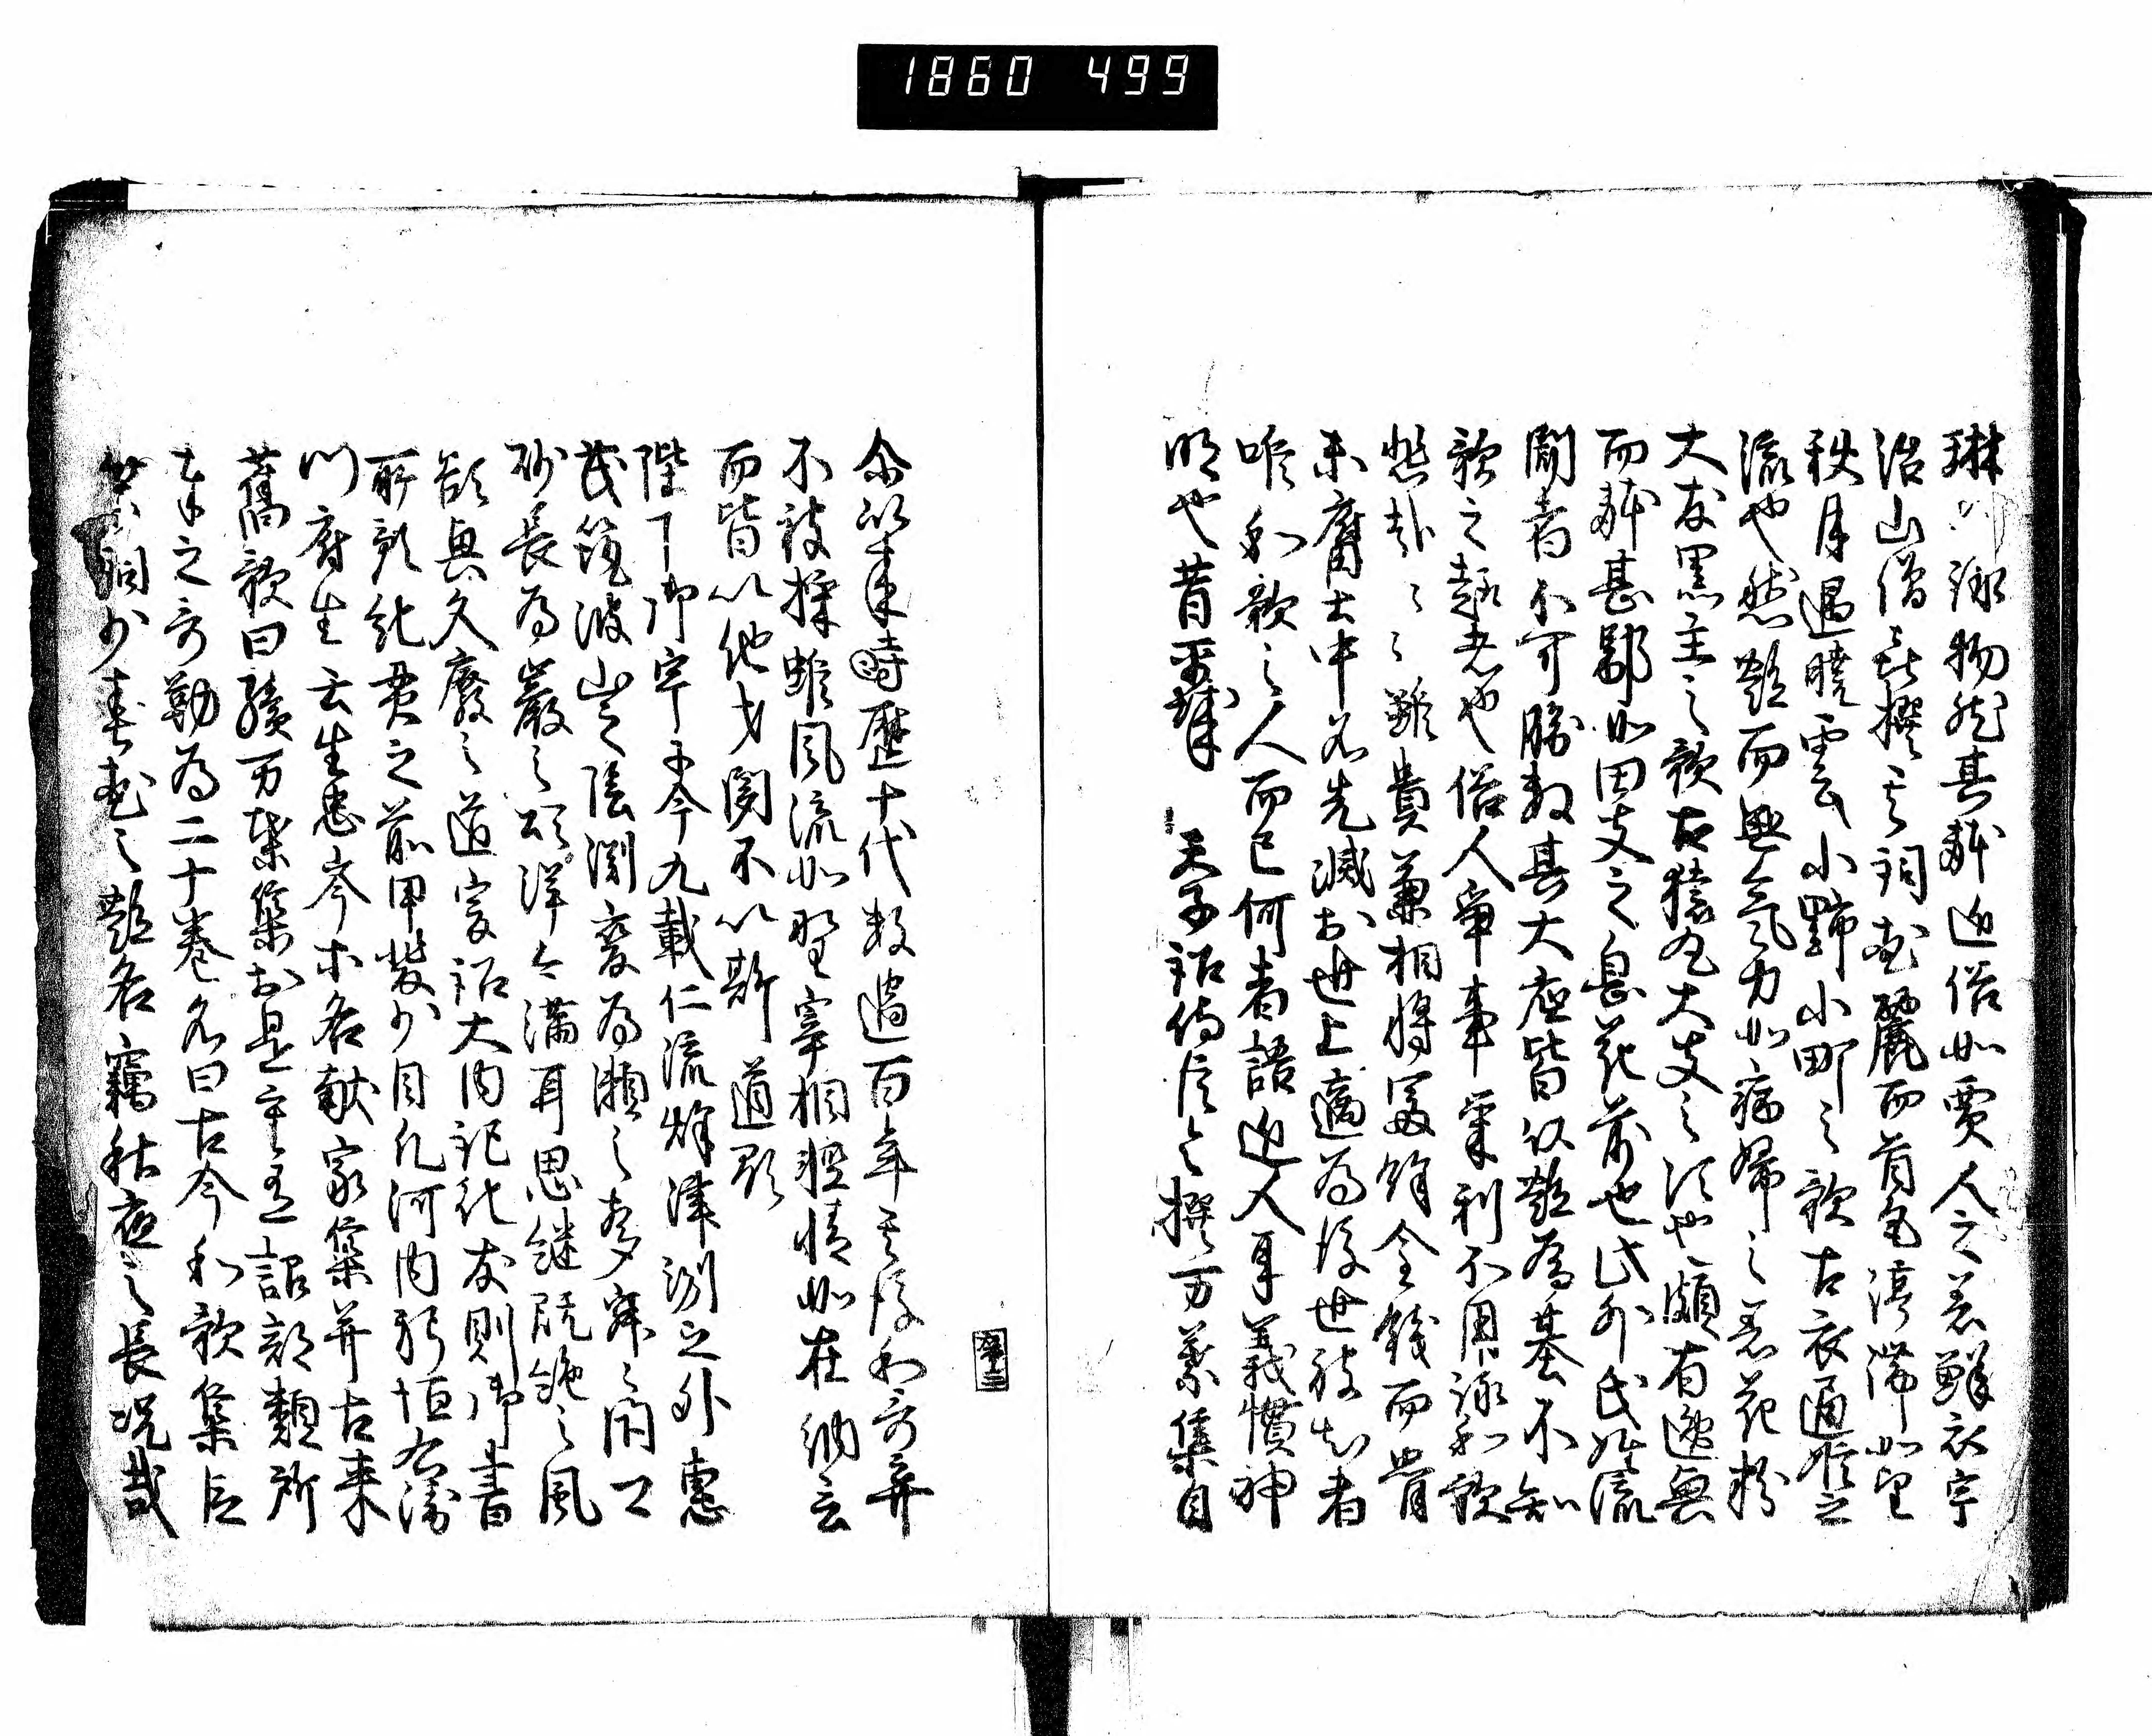 1860 499
琳巧詠物然其躰近俗如賈人之着鮮衣宇
治山僧喜撰之詞華麗而首尾渟滞如望
秋月遇暁雲小野小町之歌古衣通姫之
流也然艶而無気力如病婦之着花粉
大友黒主之歌古猿丸大夫之次也頗有逸興
而躰甚鄙如田夫之息花前也此外氏姓流
聞者不可勝数其大底皆以艶為基不知
歌之趣者也俗人争事栄利不用詠和歌
悲哉々々雖貴兼相将富餘金銭而骨
未腐土中名先滅於世上適為後世被知者
唯和歌之人而已何者語近人耳義慣神
明也昔平城 天子詔侍臣令撰万葉集自
尓以来時歴十代数過百年其後和哥弃
不被採雖風流如野宰相軽情如在納言
而皆以他才聞不以斯道顕
陛下御宇于今九載仁流秋津洲之外恵
茂筑波山之陰淵変為瀬之声寂々閇口
砂長為巌之頌洋々満耳思継既絶之風
欲興久廃之道爰詔大内記紀友則御書
所預紀貫之前甲斐少目凡河内躬恒右衛
門府生壬生忠岑等各献家集并古来
舊歌曰續万葉集於是重有詔部類所
奉之哥勒為二十巻名曰古今和歌集臣
等詞少春花之艶名竊秋夜之長况哉